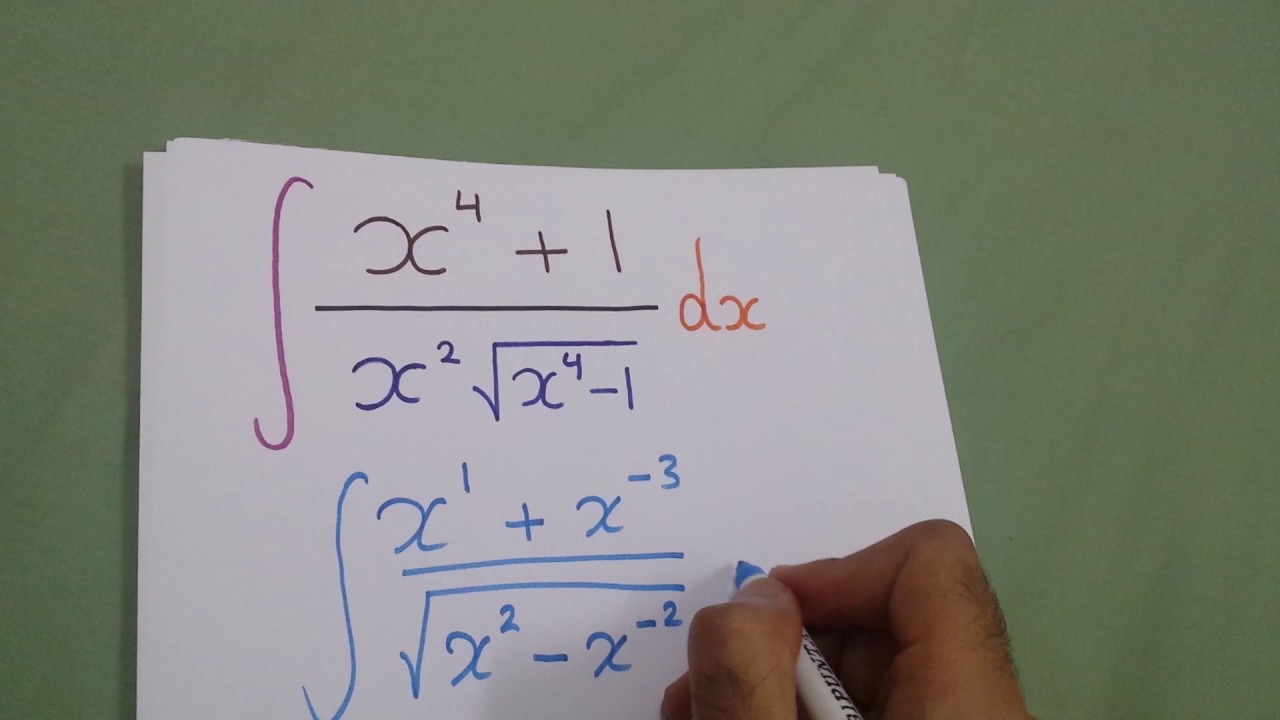 ∫ (x⁴ + 1) / (x² √(x⁴−1)) dx
∫ (x¹ + x⁻³) / √(x² − x⁻²)